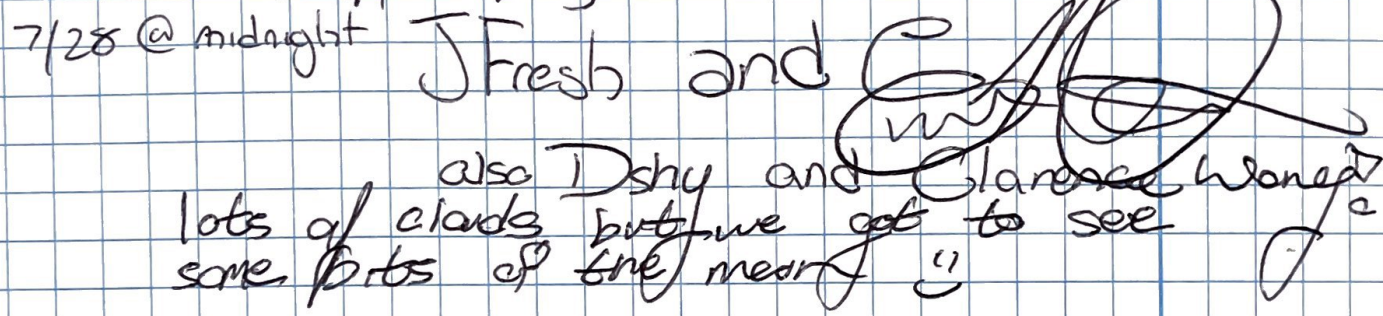 7/28 @ midnight JFresh and
also Dshy and Clarence Wong
lots of clouds but we got to see
some bits of the moon :)